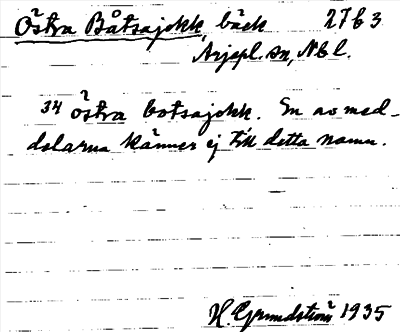 Östra Båtsajokk, bäck 27 b 3
Arjepl. sn, Nbl.
34 östra botsajokk. En av med-
delarna känner ej till detta namn.
H. Grundström 1935